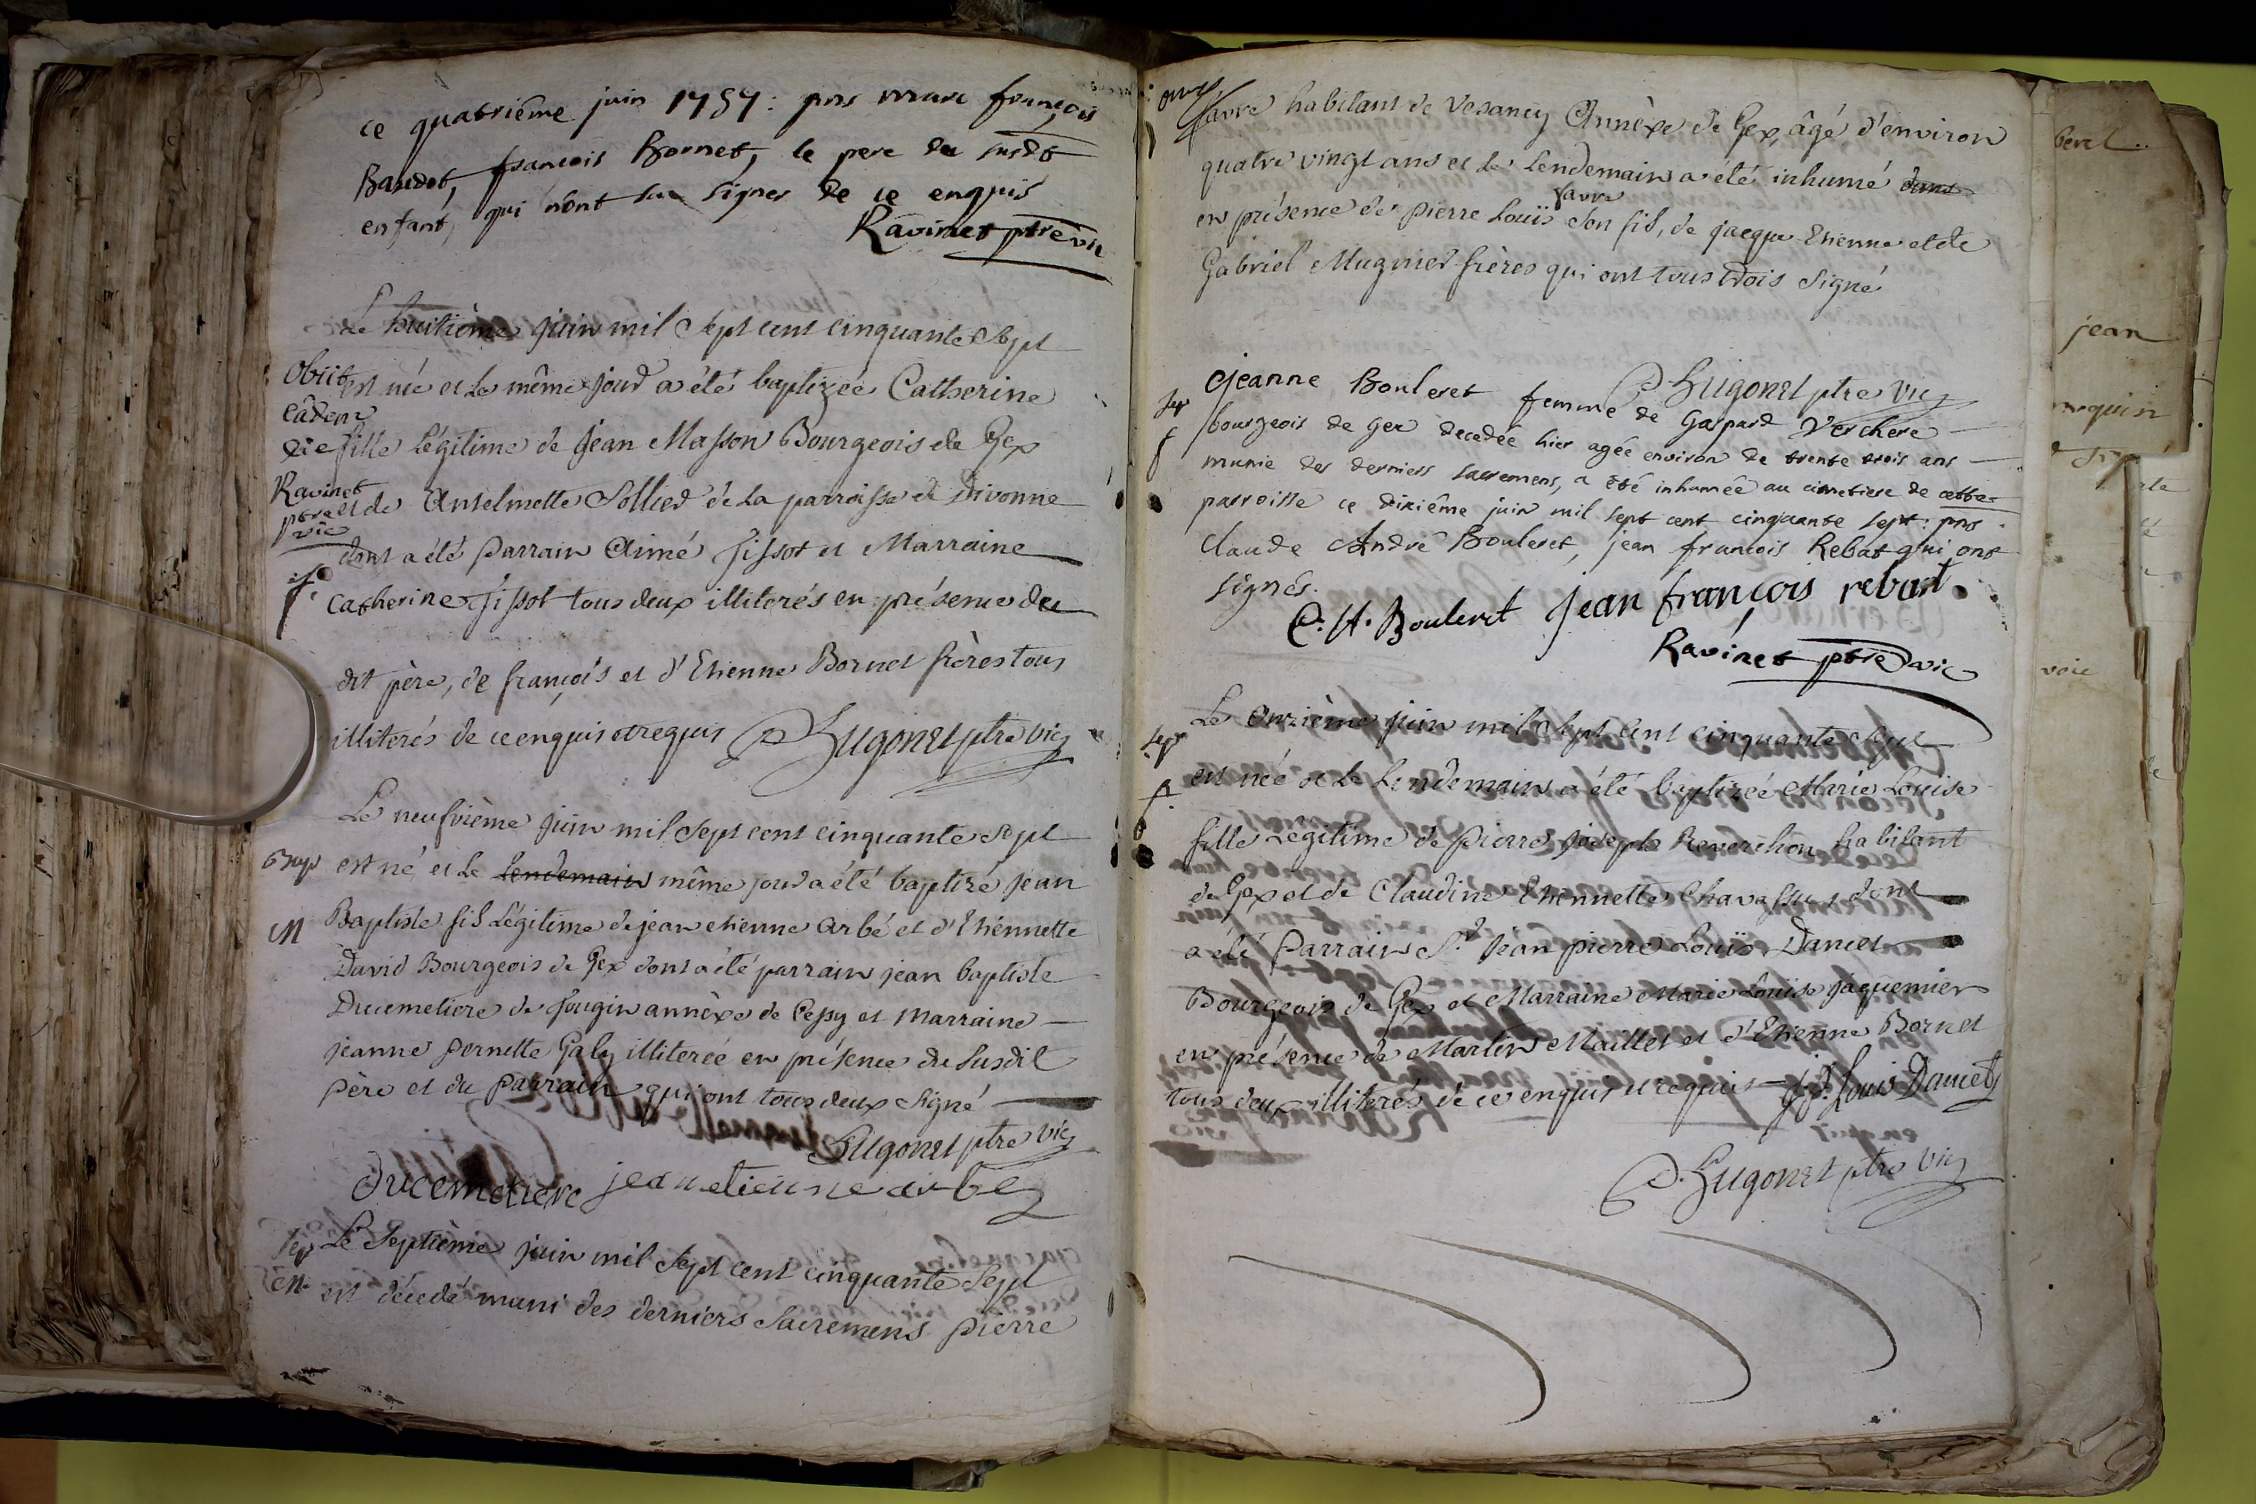 ce quatriême juin 1757: pns marc françois
Baudet, françois Bornet, le pere du susdt
enfant, qui n'ont su signer de ce enquis
Ravinet ptre vic
Le huitième juin mil sept cent cinquante sept
est née et le même jour a été baptizée Catherine
fille légitime de jean Masson Bourgeois de Gex
et de Antelmette Sollier de la parroisse de Divonne
dont a été parrain Aimé Tissot et Marraine
Catherine Tissot tous deux illiterés en présence du
dit père, de françois et d'Etienne Bornet frères tous
illiterés de ce enquis et requis Hugonet ptre vic
Obiit
eâdem
die
Ravinet
ptre
vic
f.
Le neufvième juin mil sept cent cinquante sept
Bap est né et le lendemain même jour a été baptizé jean
M Baptiste fils légitime de jean etienne arbé et d'Etiennette
David Bourgeois de Gex dont a été parrain jean baptiste
Ducemetiere de Tougin annèxe de Cessy et Marraine
jeanne pernette Galy illiterée en présence du susdit
père et du parrain qui ont tous deux signé
Hugonet ptre vic
ducemetiere jean etienne arbé
sep Le septième juin mil sept cent cinquante sept
M. est décedé muni des derniers sacremens pierre
favre habitant de Vesancy Annèxe de Gex, âgé d'environ
quatre vingt ans et le lendemain a été inhumé dans
en présence de pierre Louïs favre son fils, de jacque Etienne et de
Gabriel Mugnier frères qui ont tous trois signé
Hugonet ptre vic
sep jeanne Bouleret femme de Gaspard Verchere
f bourgeois de Gex decedée hier agée environ de trente trois ans
munie des derniers sacremens, a êté inhumée au cimetiere de cette
parroisse ce dixiême juin mil sept cent cinquante sept: pns
Claude André Bouleret, jean françois Rebat qui ont
signés.
C. A. Bouleret jean françois rebat
Ravinet ptre vic
Le onzième juin mil sept cent cinquante sept
est née et le lendemain a été baptizée Marie Louise
fille légitime de pierre joseph Reverchon habitant
de Gex et de Claudine Etiennette Chavassus dont
a été parrain Sr. jean pierre Louïs Daniet
Bourgeois de Gex et Marraine Marie Louise jaquemier
en présence de Martin Maillet et d'Etienne Bornet
tous deux illiterés de ce enquis et requis J. P. Louis Daniet
Hugonet ptre vic
beret
jean
voic